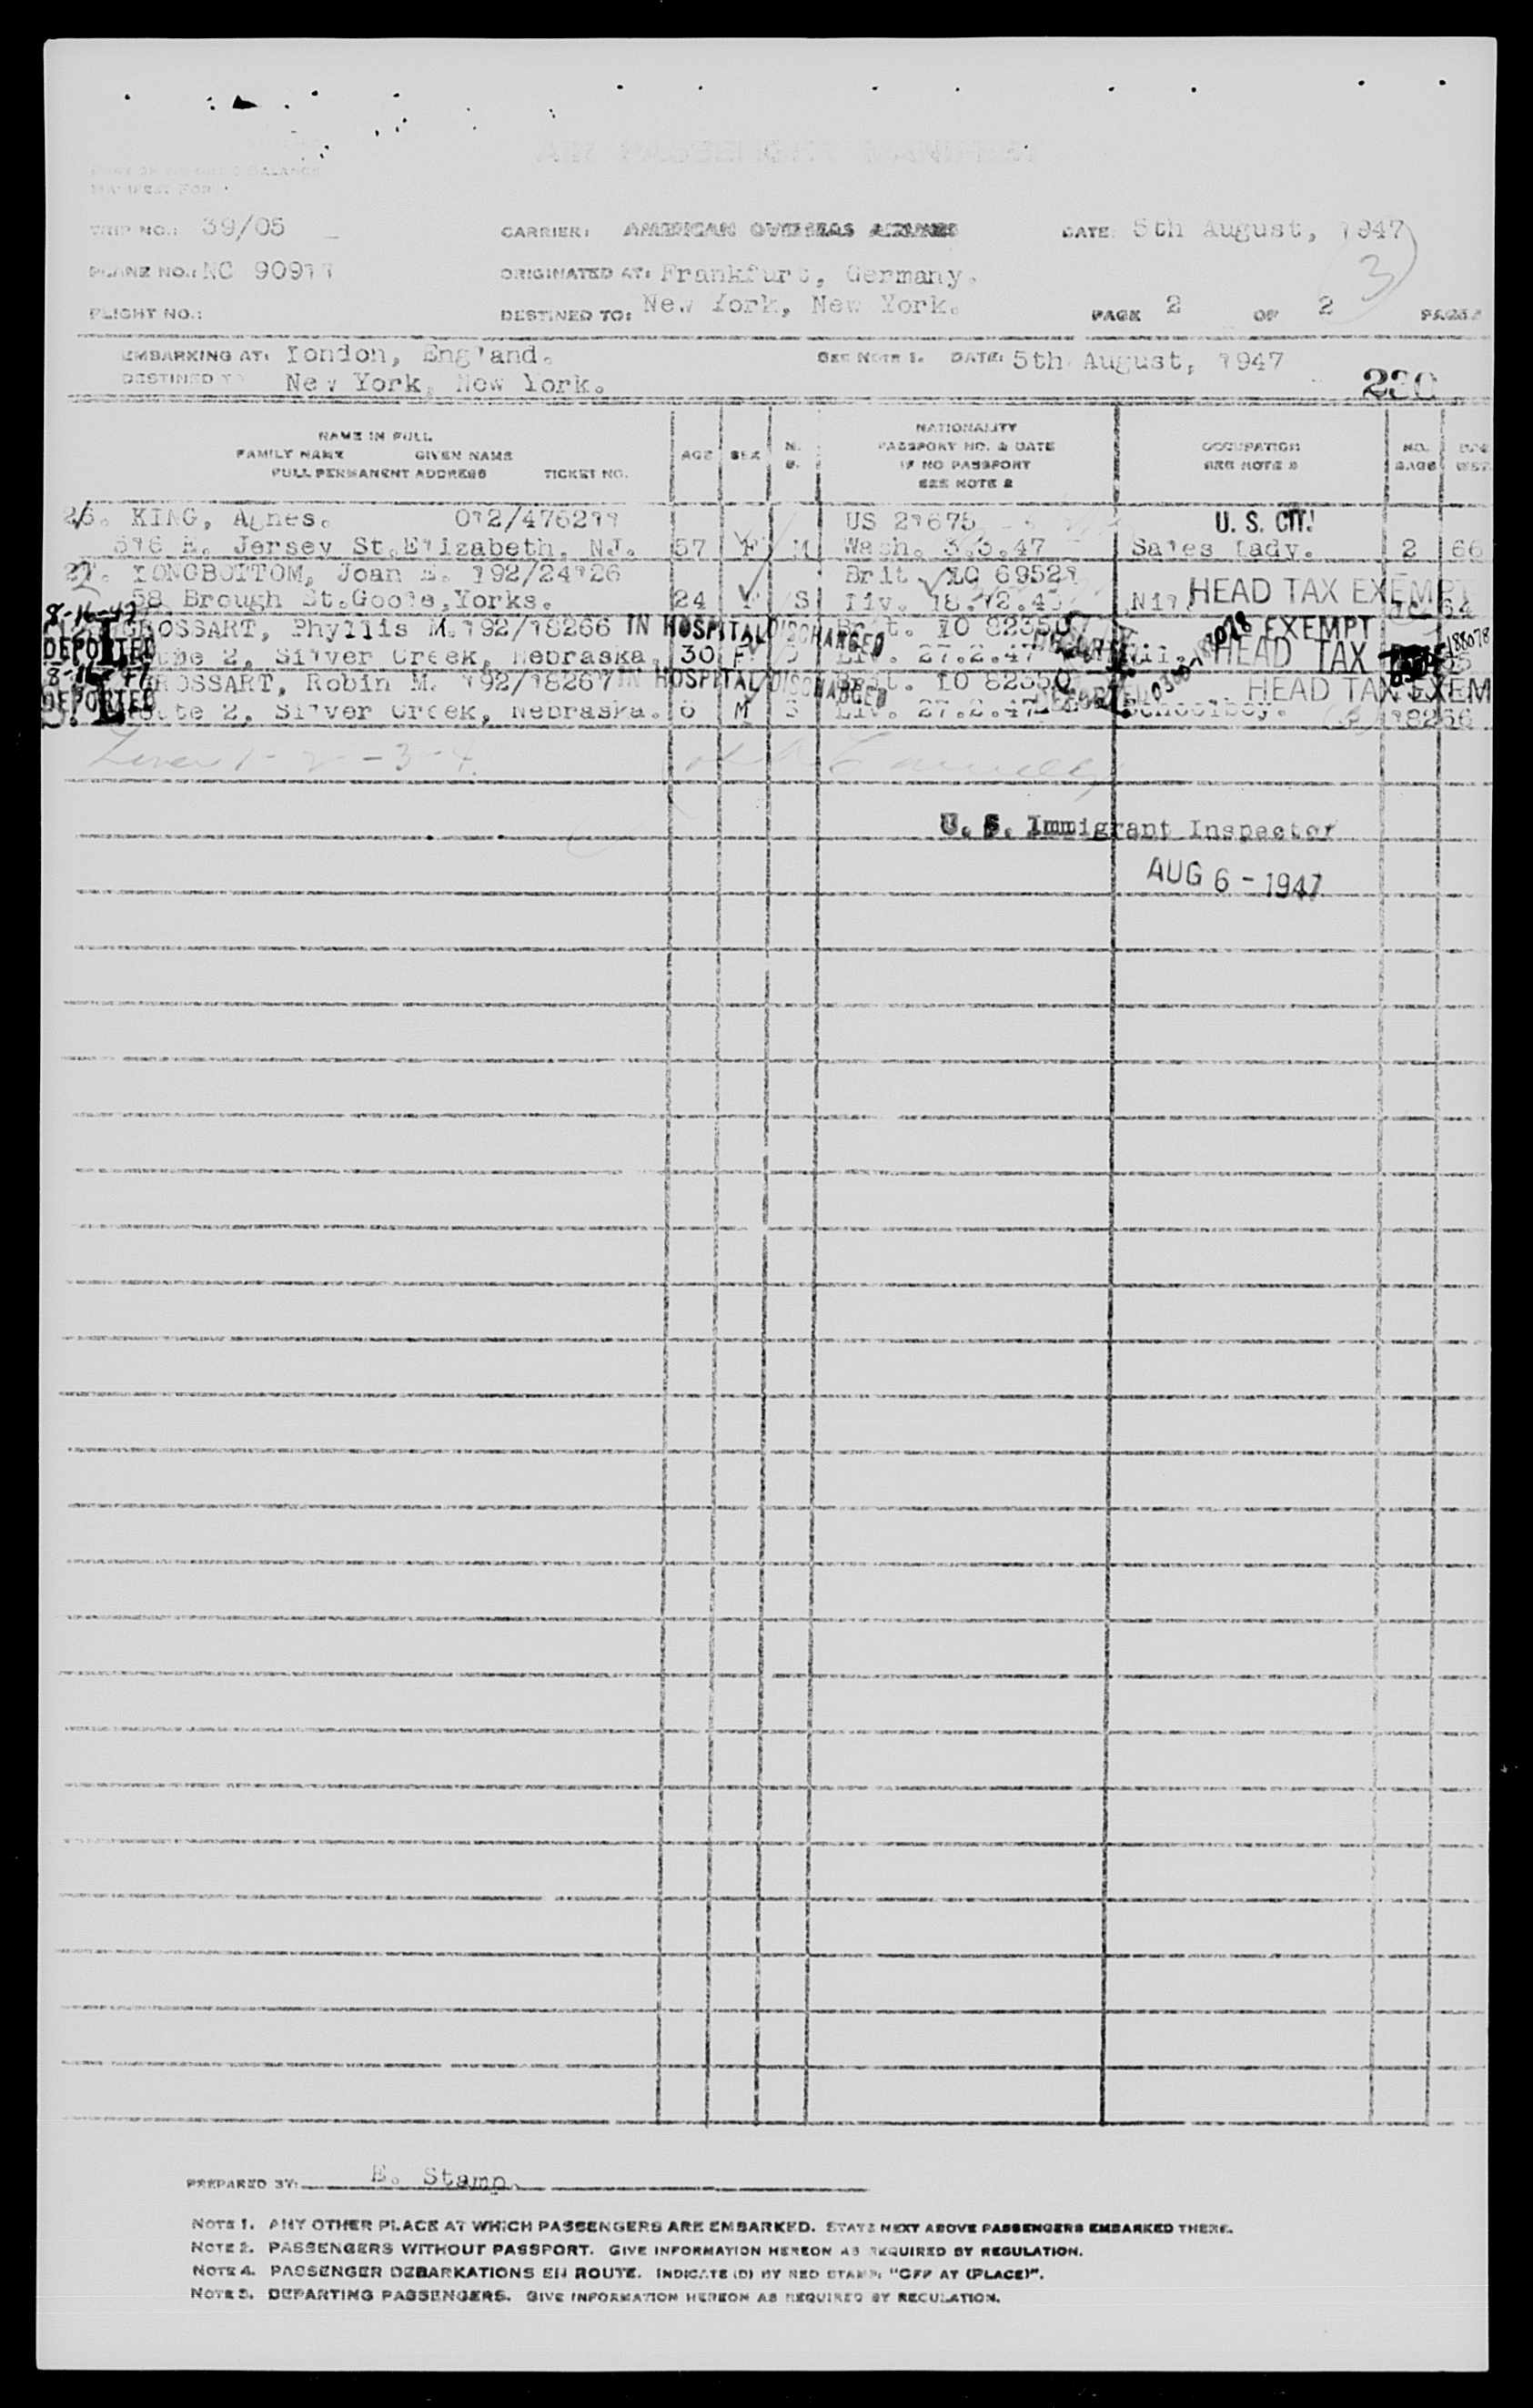 MANIFEST FOR
TRIP NO.: 39/05 CARRIER: AMERICAN OVERSEAS AIRLINES DATE: 5th August, 1947
3
PLANE NO.: NC 90911 ORIGINATED AT: Frankfurt, Germany.
FLIGHT NO.: DESTINED TO: New York, New York. PAGE 2 OF 2 PAGES
EMBARKING AT: London, England. SEE NOTE 1. DATE: 5th August, 1947
DESTINED TO New York, New York. 230
NAME IN FULL
FAMILY NAME GIVEN NAME
FULL PERMANENT ADDRESS TICKET NO.
AGE SEX M. S.
NATIONALITY
PASSPORT NO. & DATE
IF NO PASSPORT
SEE NOTE 2
OCCUPATION
SEE NOTE 3
NO. BAGS
26. KING, Agnes. 012/476211 US 21675 U. S. CIT.
516 E. Jersey St.Elizabeth. NJ. 57 F M Wash. 3.3.47 Sales Lady. 2 66
27. LONGBOTTOM, Joan E. 192/24126 Brit LO 69521
58 Brough St.Goole,Yorks. 24 F S Liv. 18.12.45 Nil. HEAD TAX EXEMPT 64
8-16-47 GROSSART, Phyllis M.192/18266 IN HOSPITAL DISCHARGED Brit. LO 82350 EXEMPT
DEPORTED Route 2, Silver Creek, Nebraska. 30 F Liv. 27.2.47 Nil. HEAD TAX 188078
8-16-47 GROSSART, Robin M. 192/18267 IN HOSPITAL DISCHARGED Brit. LO 82350 HEAD TAX EXEM
DEPORTED Route 2, Silver Creek, Nebraska. 6 M S Liv. 27.2.47 DEPORTED Schoolboy. 18266
Lines 1 - 2 - 3 - 4
U. S. Immigrant Inspector
AUG 6 - 1947
PREPARED BY: E. Stamp.
NOTE 1. ANY OTHER PLACE AT WHICH PASSENGERS ARE EMBARKED. STATE NEXT ABOVE PASSENGERS EMBARKED THERE.
NOTE 2. PASSENGERS WITHOUT PASSPORT. GIVE INFORMATION HEREON AS REQUIRED BY REGULATION.
NOTE 4. PASSENGER DEBARKATIONS EN ROUTE. INDICATE (D) BY RED STAMP: "OFF AT (PLACE)".
NOTE 5. DEPARTING PASSENGERS. GIVE INFORMATION HEREON AS REQUIRED BY REGULATION.